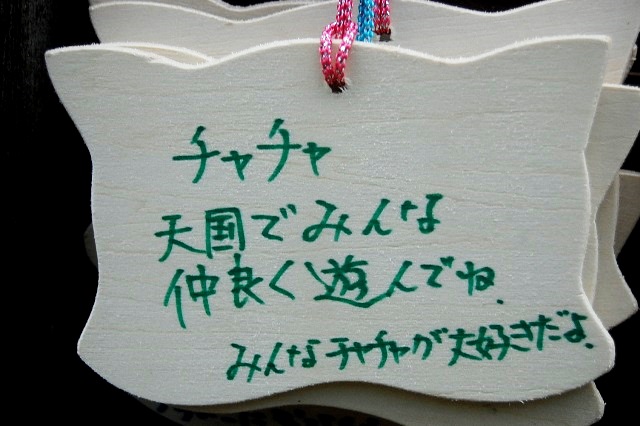 チャチャ
天国でみんな
仲良く遊んでね、
みんなチャチャが大好きだよ、